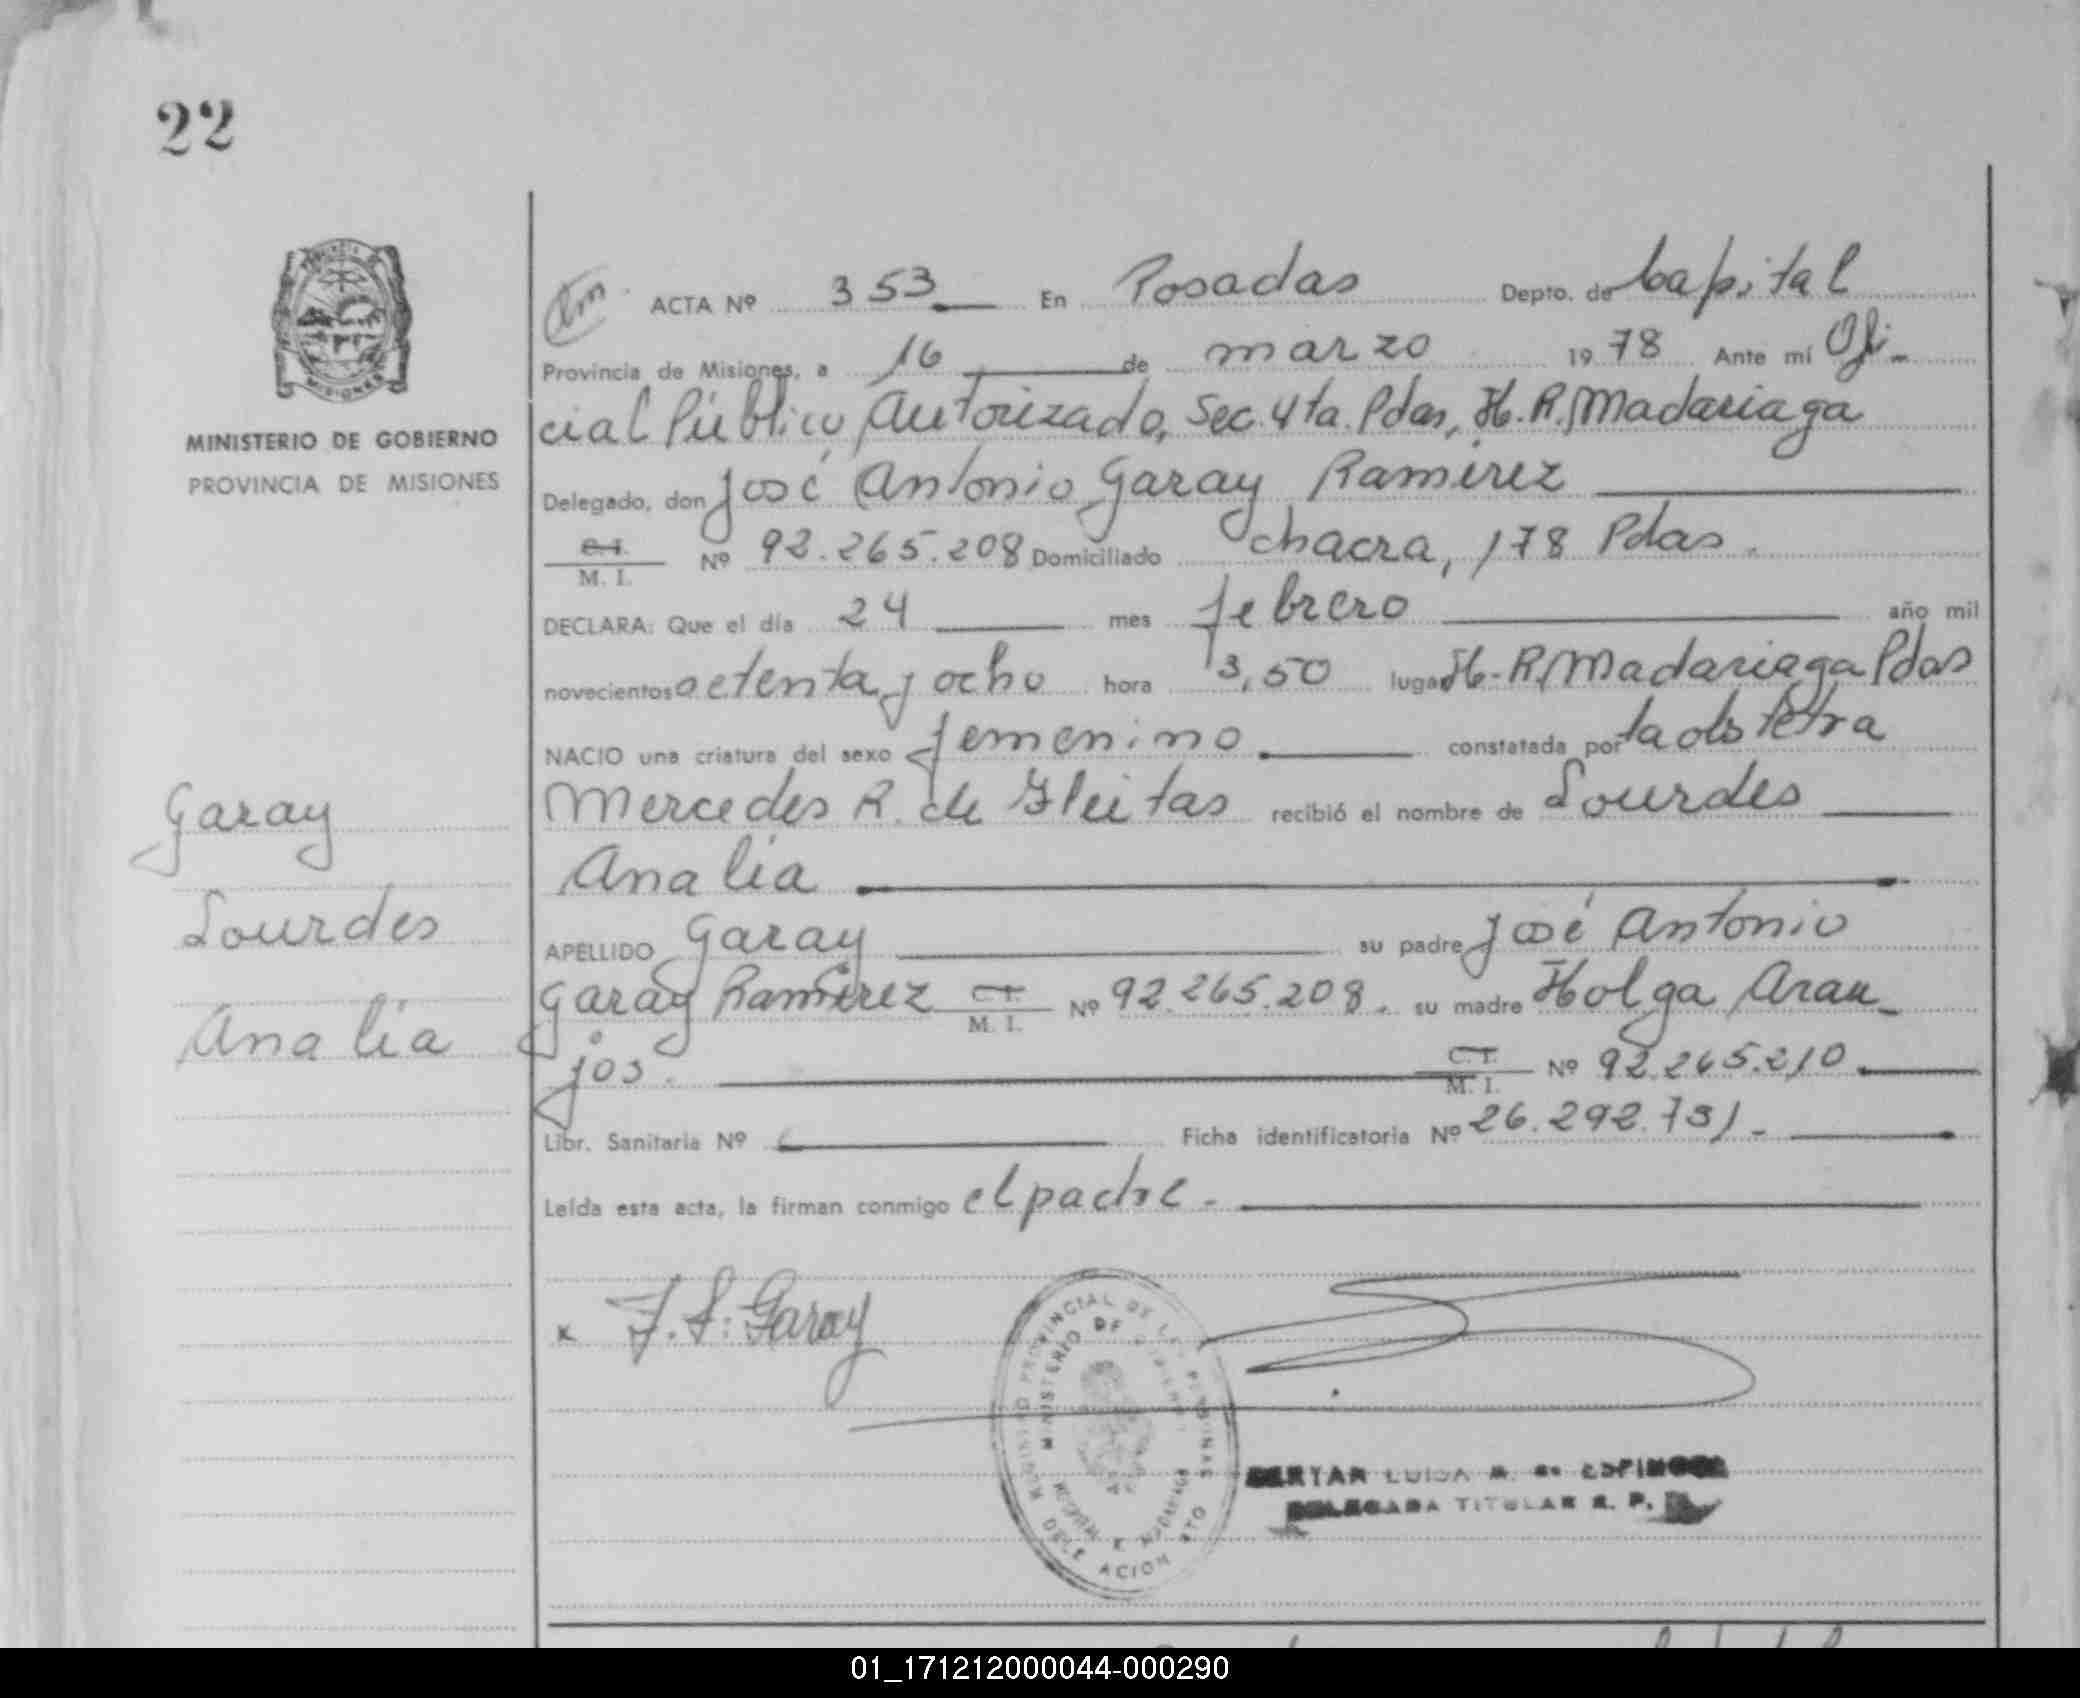 22
ACTA Nº 353 En Posadas Depto. de Capital
Provincia de Misiones, a 16 de marzo 1978 Ante mí Ofi-
cial Público Autorizado, Sec. 4ta. Pdas, H. R. Madariaga
MINISTERIO DE GOBIERNO
PROVINCIA DE MISIONES
Delegado, don José Antonio Garay Ramírez
C.I.
M. I. Nº 92.265.208 Domiciliado chacra, 178 Pdas.
DECLARA: Que el día 24 mes febrero año mil
novecientos setenta y ocho hora 3,50 lugar H. R. Madariaga Pdas
NACIO una criatura del sexo femenino constatada por la obstetra
Mercedes R. de Gleitas recibió el nombre de Lourdes
Analia
APELLIDO Garay su padre José Antonio
Garay Ramírez C.I.
M. I. Nº 92.265.208. su madre Holga Arau-
jos. C.I.
M. I. Nº 92.265.210
Libr. Sanitaria Nº Ficha identificatoria Nº 26.292.731.-
Leída esta acta, la firman conmigo el padre.-
Garay
Lourdes
Analia
x Garay
MINISTERIO DE
LUISA
DELEGADA TITULAR R. P.
01_171212000044-000290